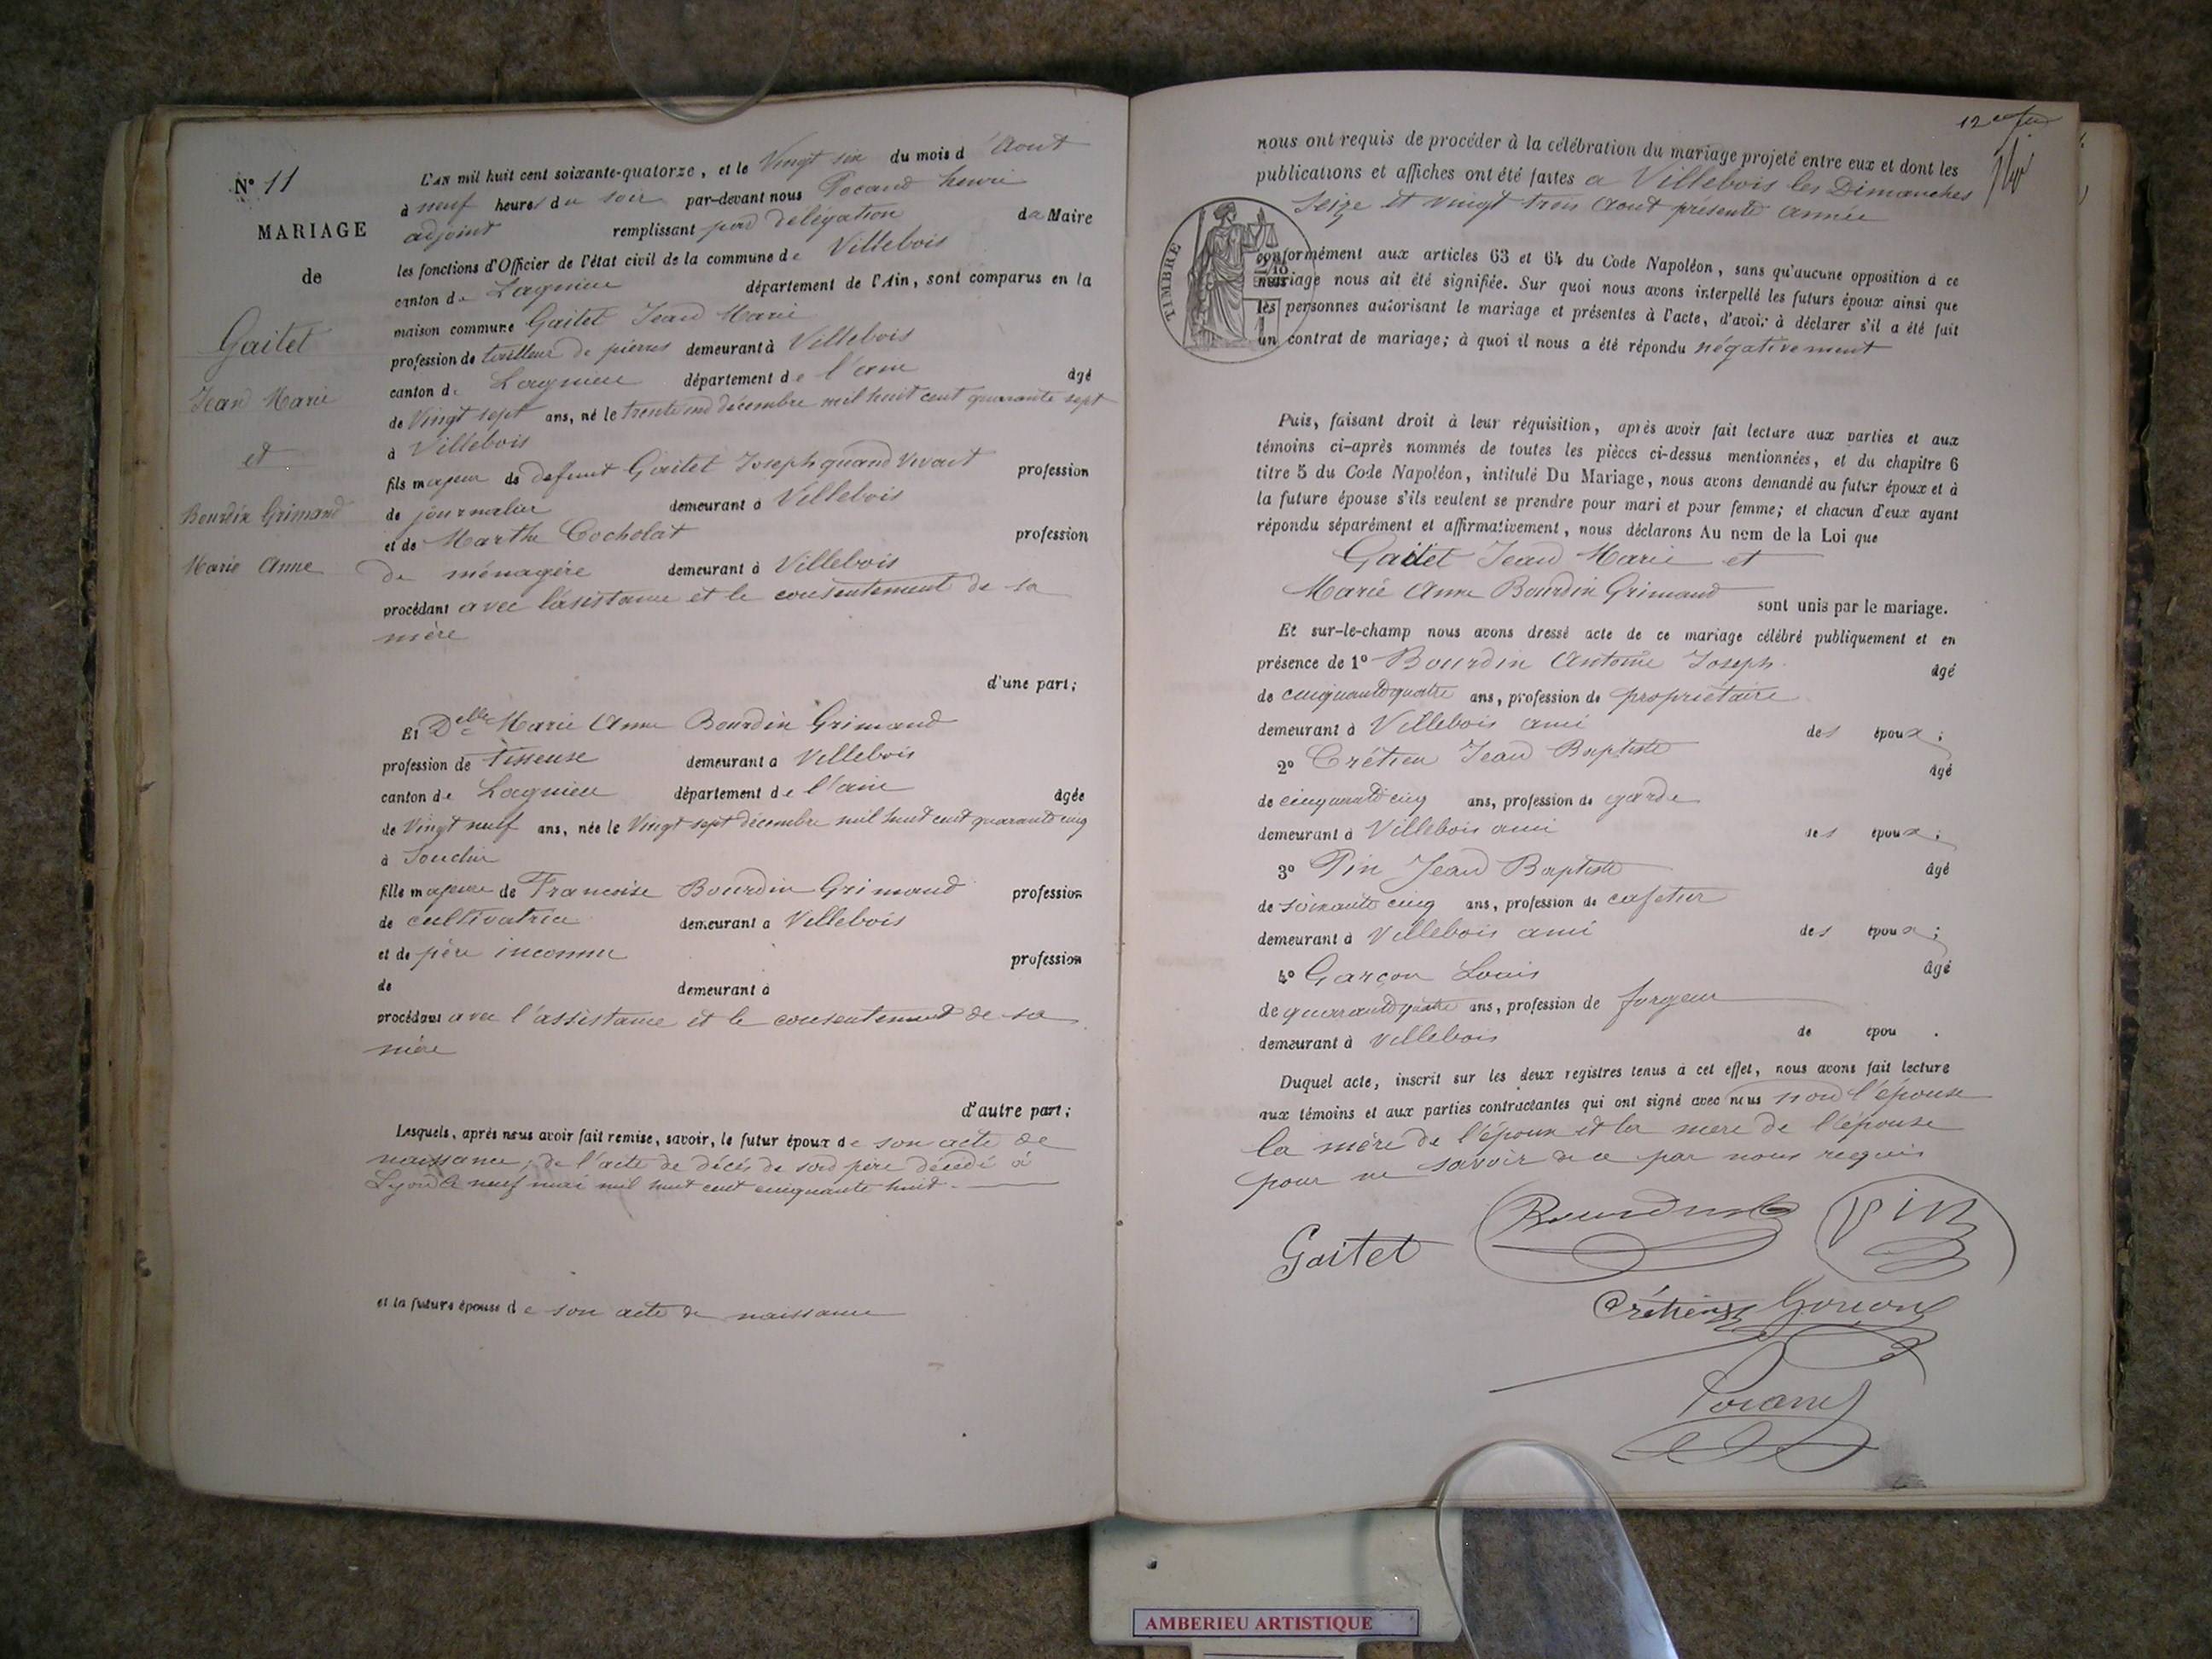 N° 11
MARIAGE
de
Gaitet
Jean Marie
et
Bourdin Grimaud
Marie Anne
L'AN mil huit cent soixante-quatorze, et le Vingt six du mois d'Aout
à neuf heures du soir par-devant nous Pocand henri
adjoint remplissant par délégation du Maire
les fonctions d'Officier de l'état civil de la commune de Villebois
canton de Lagnieu département de l'Ain, sont comparus en la
maison commune Gaitet Jean Marie
profession de tailleur de pierres demeurant à Villebois
canton de Lagnieu département de l'ain âgé
de Vingt sept ans, né le trente un décembre mil huit cent quarante sept
à Villebois
fils majeur de defunt Gaitet Joseph quand vivait profession
de journalier demeurant à Villebois
et de Marthe Cocholat profession
de ménagère demeurant à Villebois
procédant avec l'assistance et le consentement de sa
mère
d'une part;
Et Delle Marie Anne Bourdin Grimaud
profession de tisseuse demeurant à Villebois
canton de Lagnieu département de l'ain âgée
de Vingt neuf ans, née le Vingt sept décembre mil huit cent quarante cinq
à Souclin
fille majeure de Francoise Bourdin Grimaud profession
de cultivatrice demeurant à Villebois
et de père inconnu profession
de demeurant à
procédant avec l'assistance et le consentement de sa
mère
d'autre part;
Lesquels, après nous avoir fait remise, savoir, le futur époux de son acte de
naissance, de l'acte de décès de son père décédé à
Lyon le neuf mai mil huit cent cinquante huit.
et la future épouse de son acte de naissance
nous ont requis de procéder à la célébration du mariage projeté entre eux et dont les
publications et affiches ont été faites à Villebois les Dimanches
Seize et vingt trois Aout présente année
TIMBRE
conformément aux articles 63 et 64 du Code Napoléon, sans qu'aucune opposition à ce
mariage nous ait été signifiée. Sur quoi nous avons interpellé les futurs époux ainsi que
les personnes autorisant le mariage et présentes à l'acte, d'avoir à déclarer s'il a été fait
un contrat de mariage; à quoi il nous a été répondu négativement
Puis, faisant droit à leur réquisition, après avoir fait lecture aux parties et aux
témoins ci-après nommés de toutes les pièces ci-dessus mentionnées, et du chapitre 6
titre 5 du Code Napoléon, intitulé Du Mariage, nous avons demandé au futur époux et à
la future épouse s'ils veulent se prendre pour mari et pour femme; et chacun d'eux ayant
répondu séparément et affirmativement, nous déclarons Au nom de la Loi que
Gaitet Jean Marie et
Marie Anne Bourdin Grimaud sont unis par le mariage.
Et sur-le-champ nous avons dressé acte de ce mariage célébré publiquement et en
présence de 1° Bourdin Antoine Joseph âgé
de cinquante quatre ans, profession de propriétaire
demeurant à Villebois ami des époux;
2° Crétien Jean Baptiste âgé
de cinquante cinq ans, profession de garde
demeurant à Villebois ami des époux;
3° Pin Jean Baptiste âgé
de soixante cinq ans, profession de cafetier
demeurant à Villebois ami des époux;
4° Garçon Louis âgé
de quarante quatre ans, profession de forgeur
demeurant à Villebois de épou .
Duquel acte, inscrit sur les deux registres tenus à cet effet, nous avons fait lecture
aux témoins et aux parties contractantes qui ont signé avec nous non l'épouse
la mère de l'époux et la mere de l'épouse
pour ne savoir de ce par nous requis
Gaitet Bourdin Pin
Crétien Garçon
Pocand
AMBERIEU ARTISTIQUE